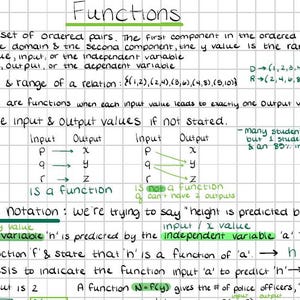 Functions
set of ordered pairs. The first component in the ordered
e domain & the second component, the y value is the rang
ue, input, or the independent variable
, output, or the dependent variable
D → {1,2,
R → {2,4,6
& range of a relation: {(1,2),(2,4),(3,6),(4,8),(5,10)}
are functions when each input value leads to exactly one output v
e input & output values if not stated.
- many studen
but 1 stude
& an 85% in
Input Output Input Output
p → x p x
q → y q y
r → z r z
is a function is not a function
q can't have 2 outputs
Notation: we're trying to say "height is predicted b
y value input / x value
variable 'h' is predicted by the independent variable 'a'
ction 'f' & state that 'h' is a function of 'a'. → h
sis to indicate the function input 'a' to predict 'h' →
ut is 2 A function N = f(y) gives the # of police officers,